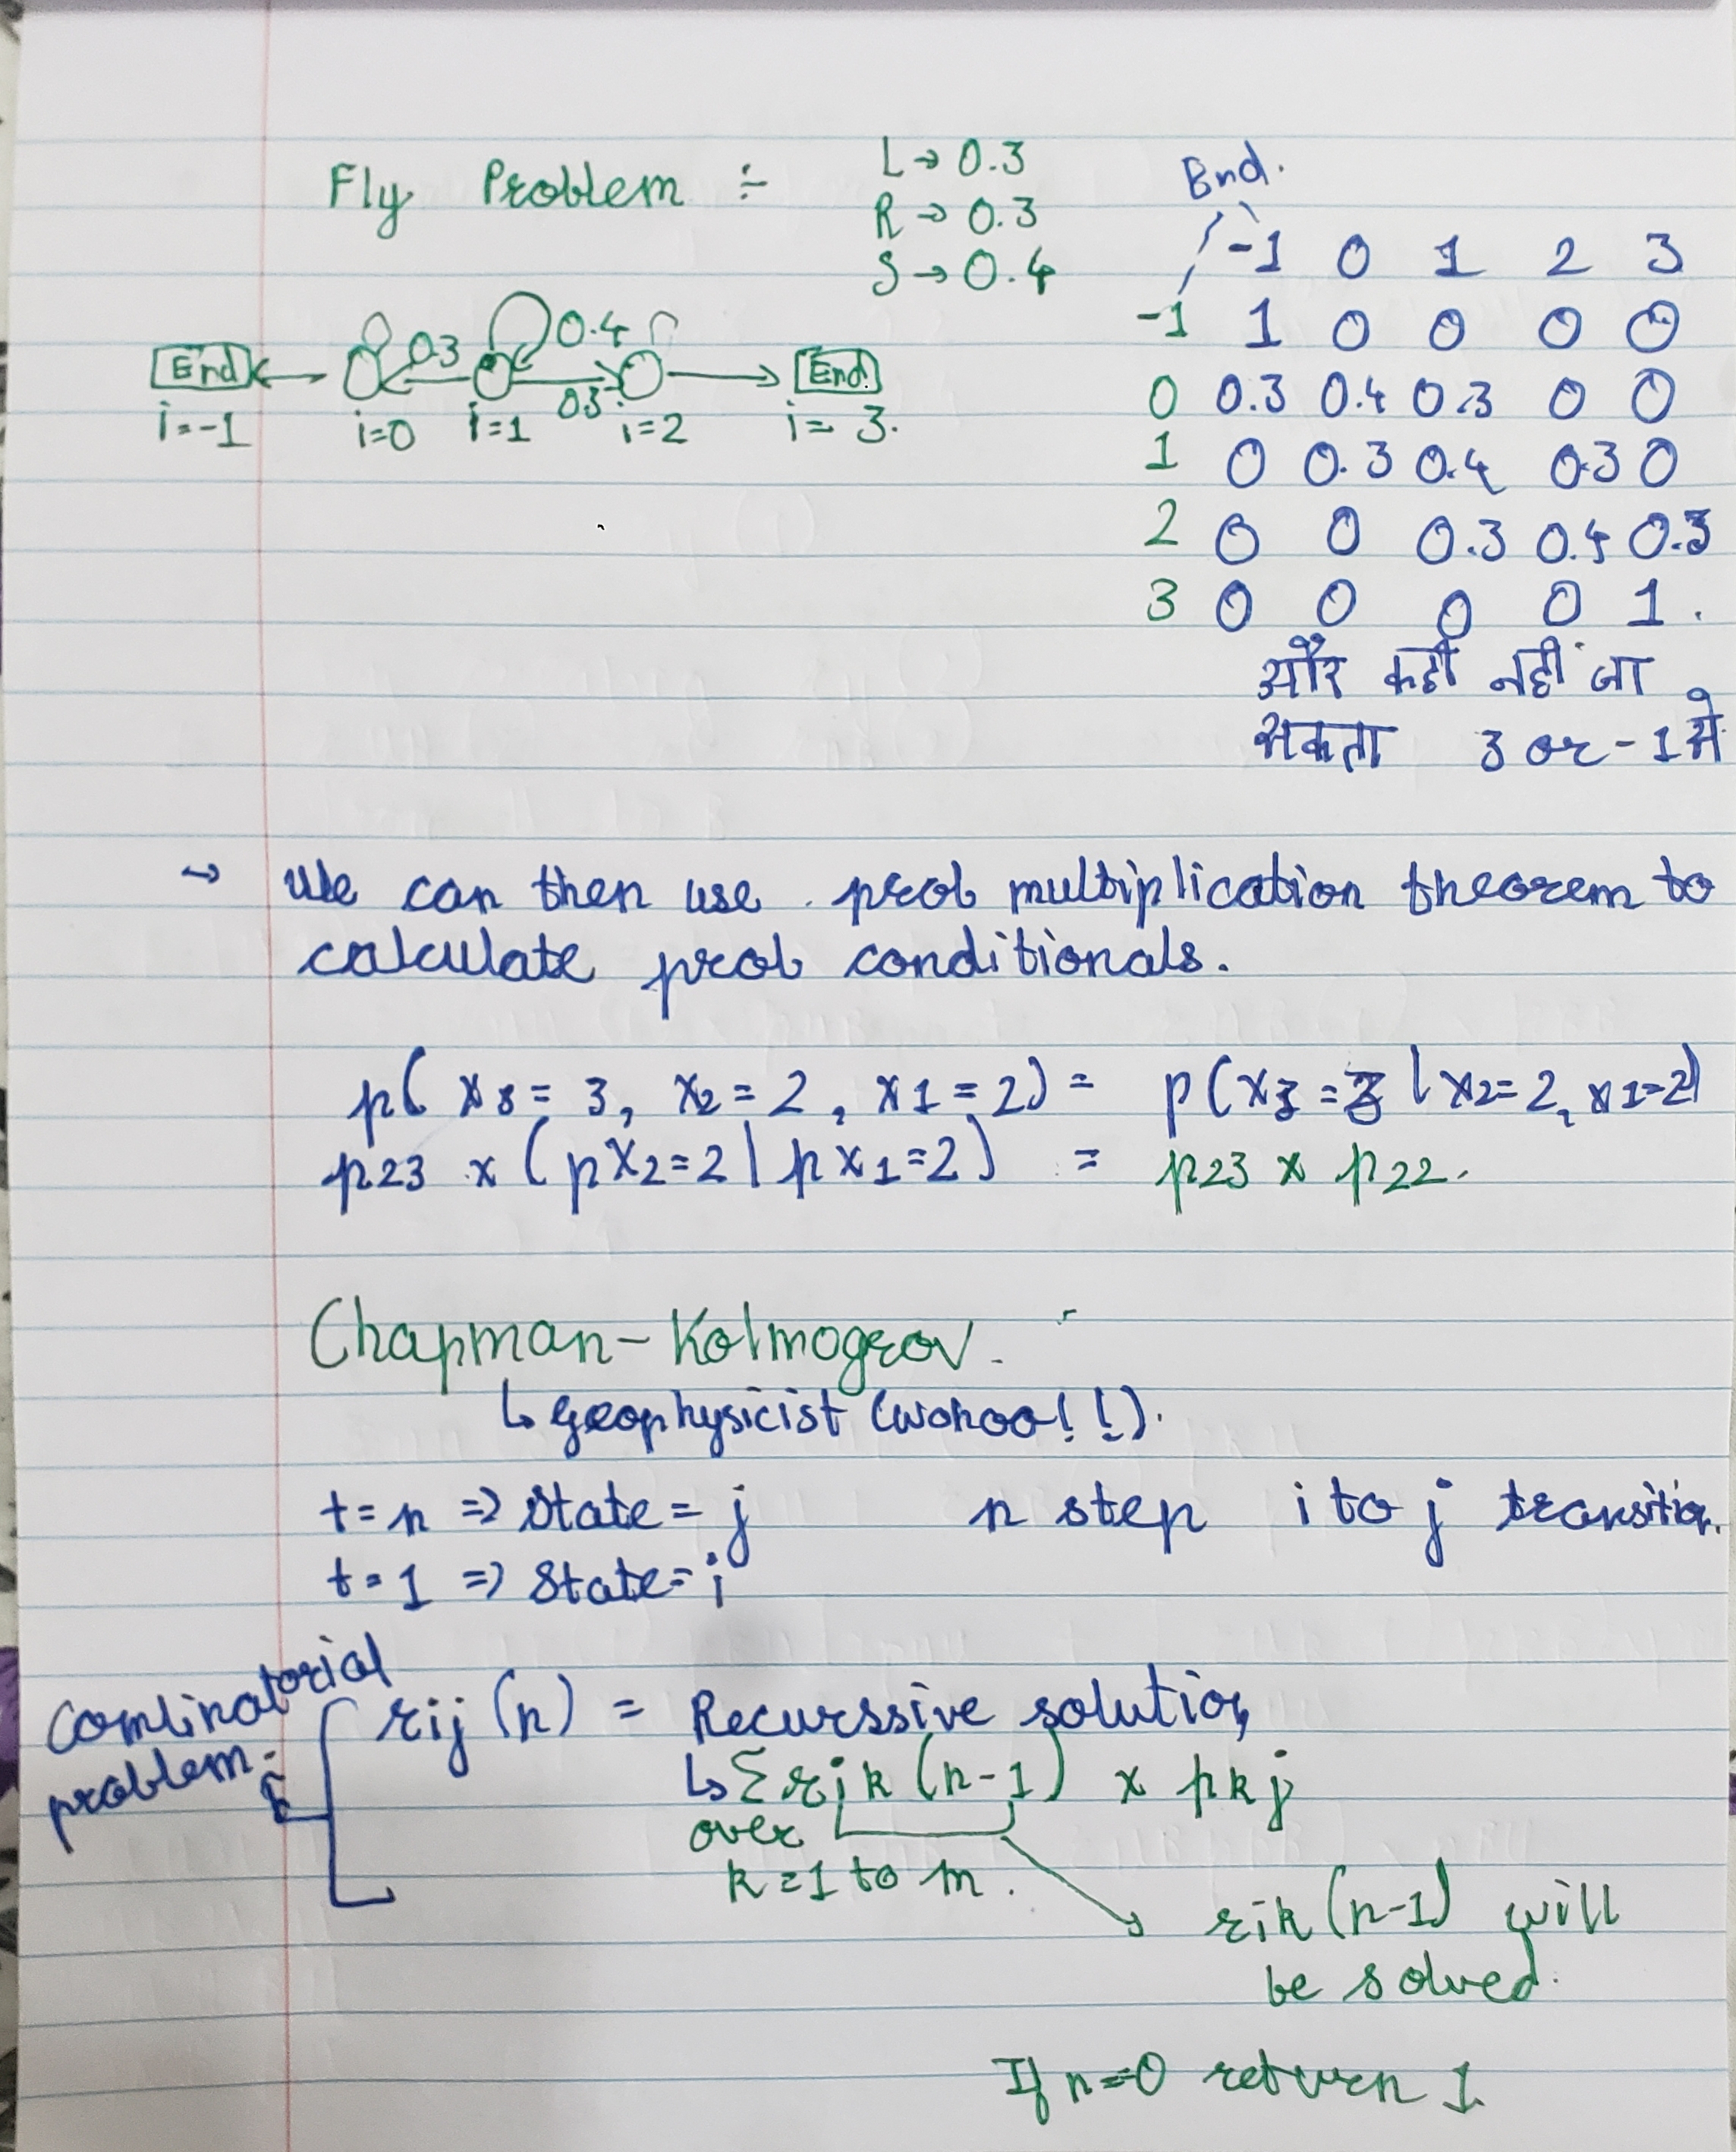 Fly Problem ÷
L → 0.3
R → 0.3
S → 0.4
End.
-1 0 1 2 3
-1 1 0 0 0 0
0 0.3 0.4 0.3 0 0
1 0 0.3 0.4 0.3 0
2 0 0 0.3 0.4 0.3
3 0 0 0 0 1.
और कहीं नहीं जा
सकता 3 or -1 से
0.3 0.4
End End
0.3
i=-1 i=0 i=1 i=2 i= 3.
→ We can then use prob multiplication theorem to
calculate prob conditionals.
p( x3 = 3, x2 = 2, x1 = 2) = p(x3 = 3 | x2 = 2, x1=2)
p23 x (px2=2 | px1=2) = p23 x p22.
Chapman-Kolmogrov.
↳ geophysicist (wohoo!!).
t=n => State = j n step i to j transition.
t=1 => State=i
Combinatorial
problem.
rij (n) = Recurssive solution,
↳ Σ rik (n-1) x pkj
over
k=1 to m.
rik (n-1) will
be solved.
If n=0 return 1.